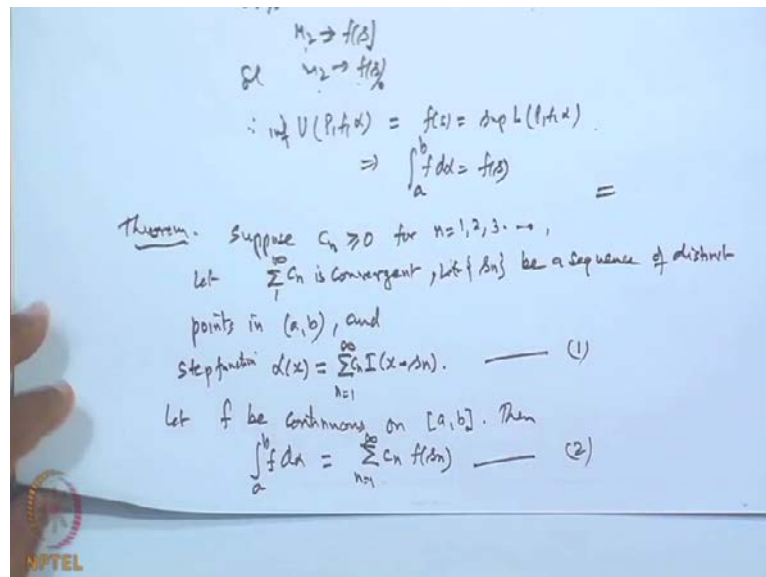 M₂ → f(s)
M₂ → f(s)
∴ inf U(P,f,α) = f(s) = sup L(P,f,α)
⇒ ∫ₐᵇ f dα = f(s)
=
Theorem. Suppose Cₙ ≥ 0 for n = 1,2,3. ...,
Let ∑₁^∞ Cₙ is convergent, Let {sₙ} be a sequence of distinct
points in (a,b), and
step function α(x) = ∑ₙ₌₁^∞ Cₙ I(x-sₙ). —— (1)
Let f be continuous on [a,b]. Then
∫ₐᵇ f dα = ∑ₙ₌₁^∞ Cₙ f(sₙ) —— (2)
NPTEL